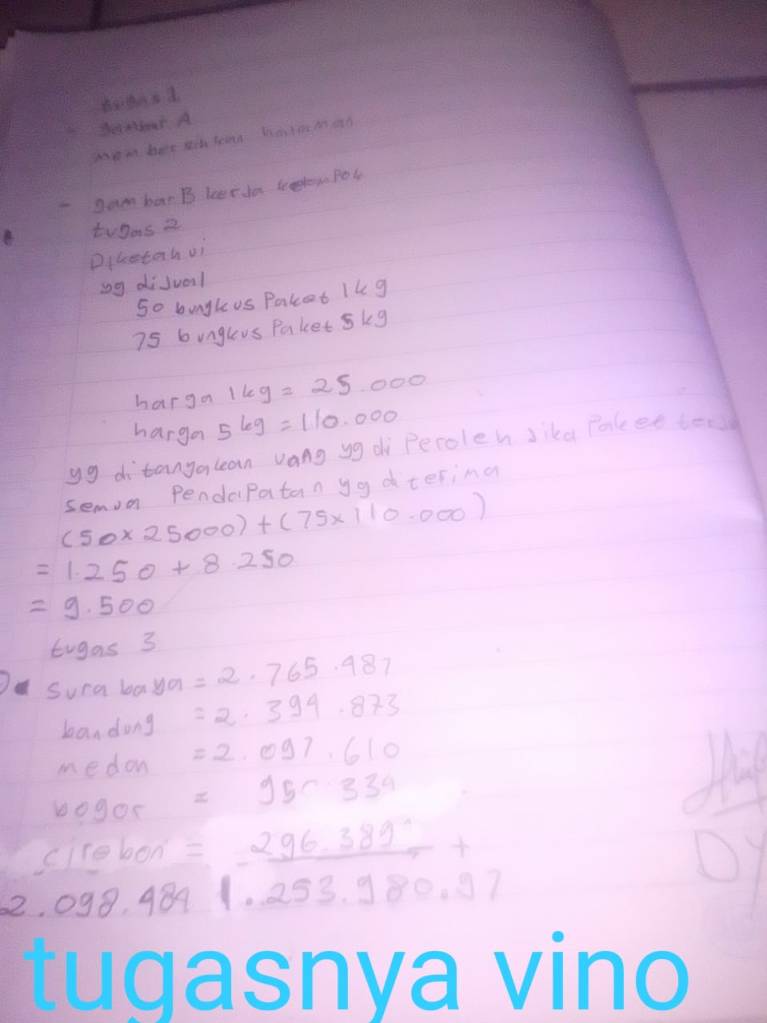 tugas 1
- gambar A
membersihkan halaman
- gambar B kerja kelompok
tugas 2
Diketahui
yg dijual
50 bungkus Paket 1kg
75 bungkus Paket 5kg
harga 1kg = 25.000
harga 5kg = 110.000
yg ditanyakan uang yg di Peroleh jika Paket
semua Pendapatan yg diterima
(50x25000)+(75x110.000)
= 1.250 + 8.250
= 9.500
tugas 3
Surabaya = 2.765.487
bandung = 2.394.873
medan = 2.097.610
bogor = 950.334
cirebon = 296.389 +
2.098.484 1..253.980.97
tugasnya vino